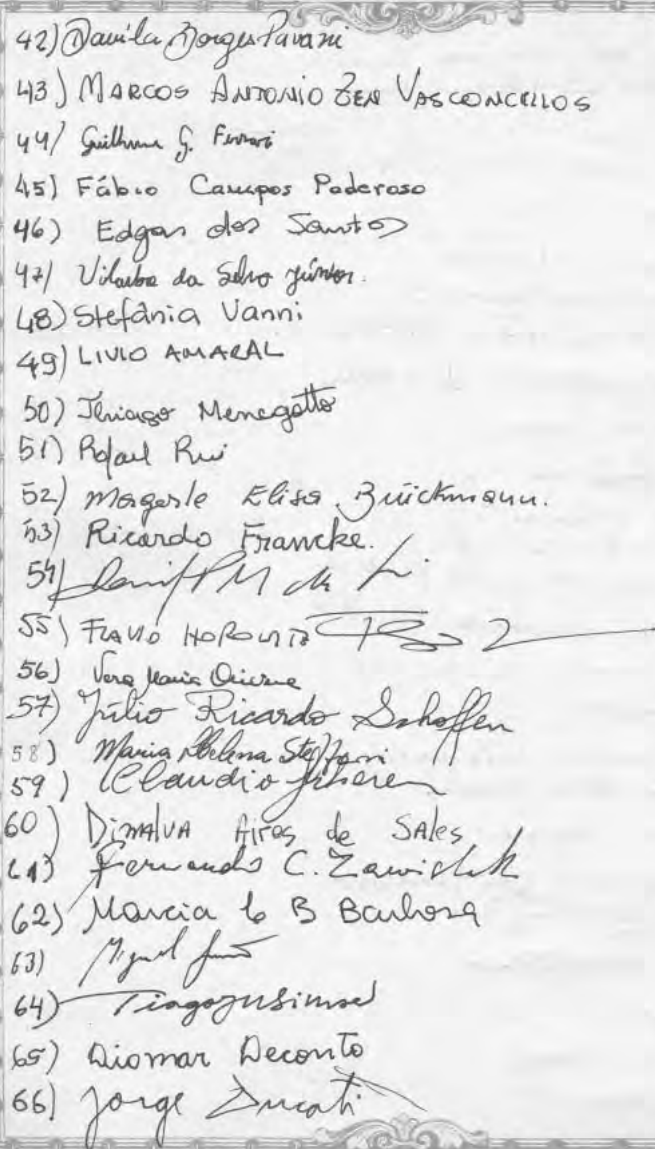 42) Davila Borges Pavani
43) MARCOS ANTONIO ZEN VASCONCELLOS
44) Guilherme G. Ferrari
45) Fábio Campos Poderoso
46) Edgar dos Santos
47) da Silva Júnior.
48) Stefânia Vanni
49) LIVIO AMARAL
50) Thiago Menegotto
51) Rafael Rui
52) Elisa
53) Ricardo Francke.
54)
55) FLAVIO HOROWITZ
56) Vera Maria
57) Júlio Ricardo Schoffen
58) Maria Helena Steffani
59) Claudio
60) DINALVA Aires de SALES
61) Fernando C. Zawislak
62) Marcia C B Barbosa
63) Miguel
64)
65) Diomar Deconto
66) Jorge Ducati